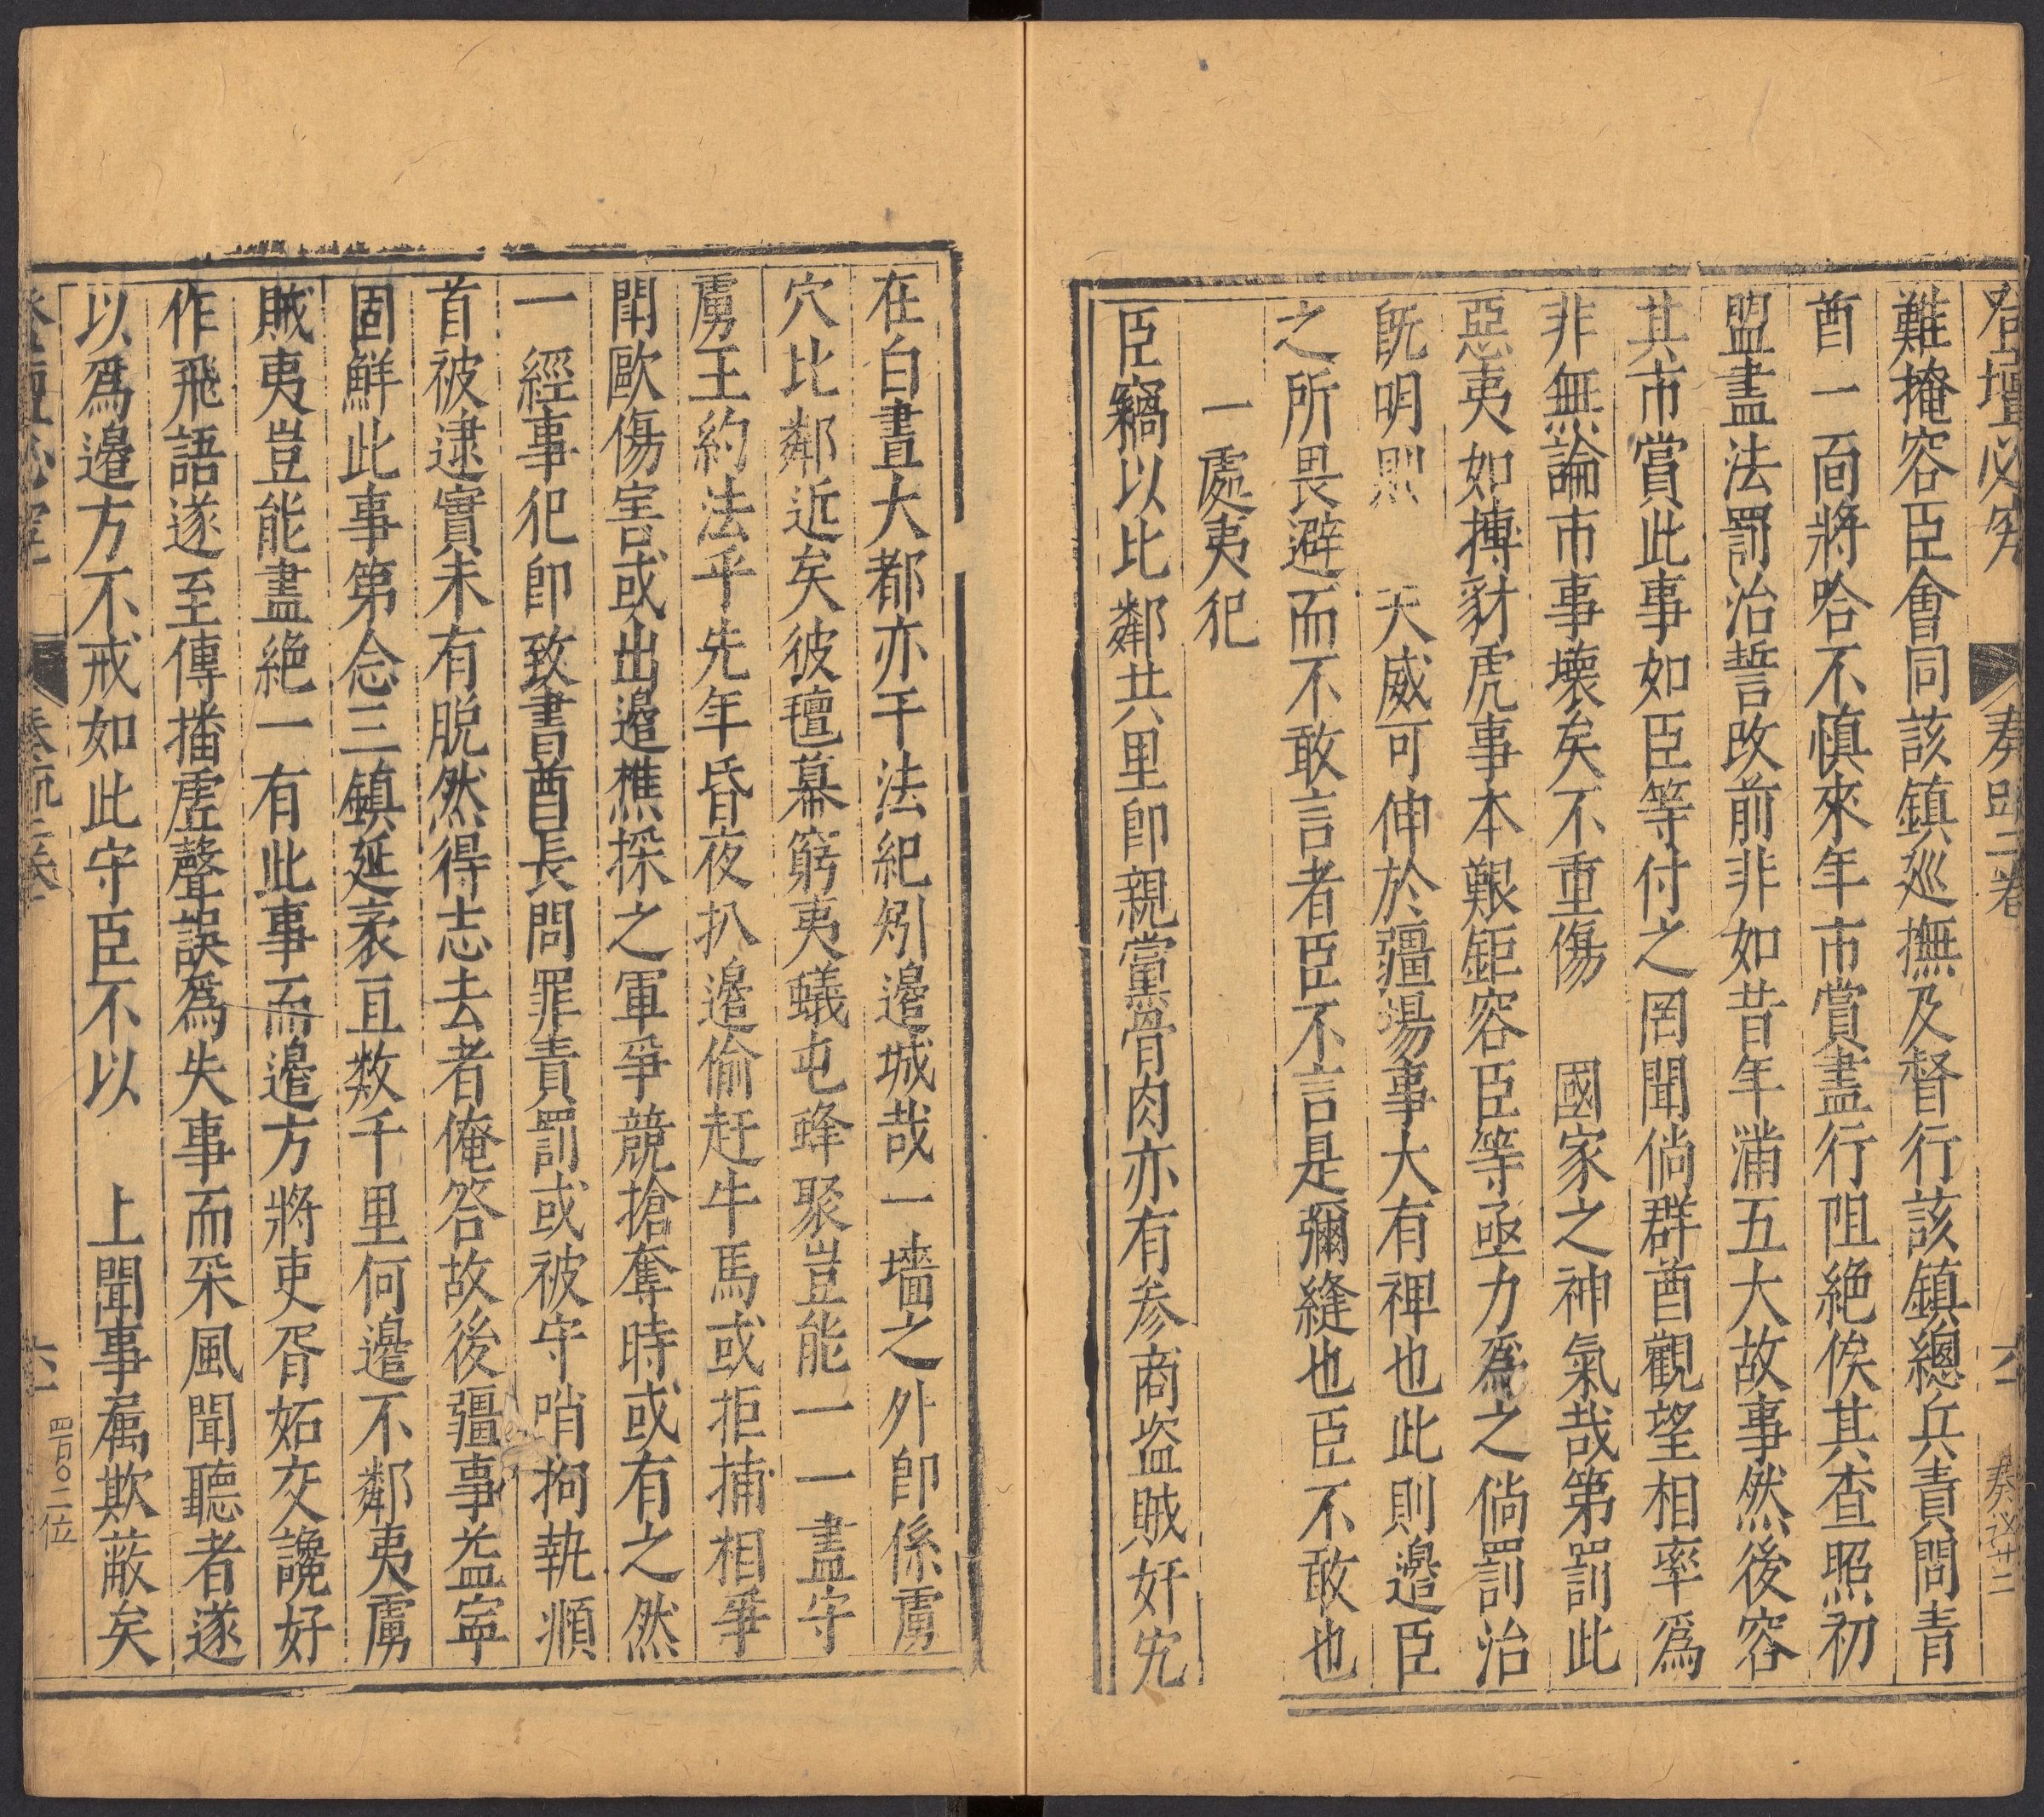 登壇必究 奏疏二卷 六 奏裝十二
難掩容臣會同該鎮巡撫及督行該鎮總兵責問青
酋一面將哈不慎來年市賞盡行阻絶俟其查照初
盟盡法罰治誓改前非如昔年滿五大故事然後容
其市賞此事如臣等付之罔聞倘群酋觀望相率爲
非無論市事壞矣不重傷 國家之神氣哉第罰此
惡夷如搏豺虎事本艱鉅容臣等亟力爲之倘罰治
旣明則 天威可伸於疆場事大有禆也此則邊臣
之所畏避而不敢言者臣不言是彌縫也臣不敢也
一處夷犯
臣竊以比鄰共里卽親黨骨肉亦有參商盜賊奸宄
在白晝大都亦干法紀矧邊城哉一墻之外卽係虜
穴比鄰近矣彼氊幕窮夷蟻屯蜂聚豈能一一盡守
虜王約法乎先年昏夜扒邊偷赶牛馬或拒捕相爭
鬧毆傷害或出邊樵採之軍爭競搶奪時或有之然
一經事犯卽致書酋長問罪責罰或被守哨拘執順
首被逮實未有脫然得志去者俺答故後疆事益寧
固鮮此事第念三鎮延袤亘数千里何邊不鄰夷虜
賊夷豈能盡絶一有此事而邊方將吏胥妬交讒好
作飛語遂至傳播虛聲誤爲失事而采風聞聽者遂
以爲邊方不戒如此守臣不以 上聞事属欺蔽矣
登壇必究 奏疏二卷 六 四百〇二位